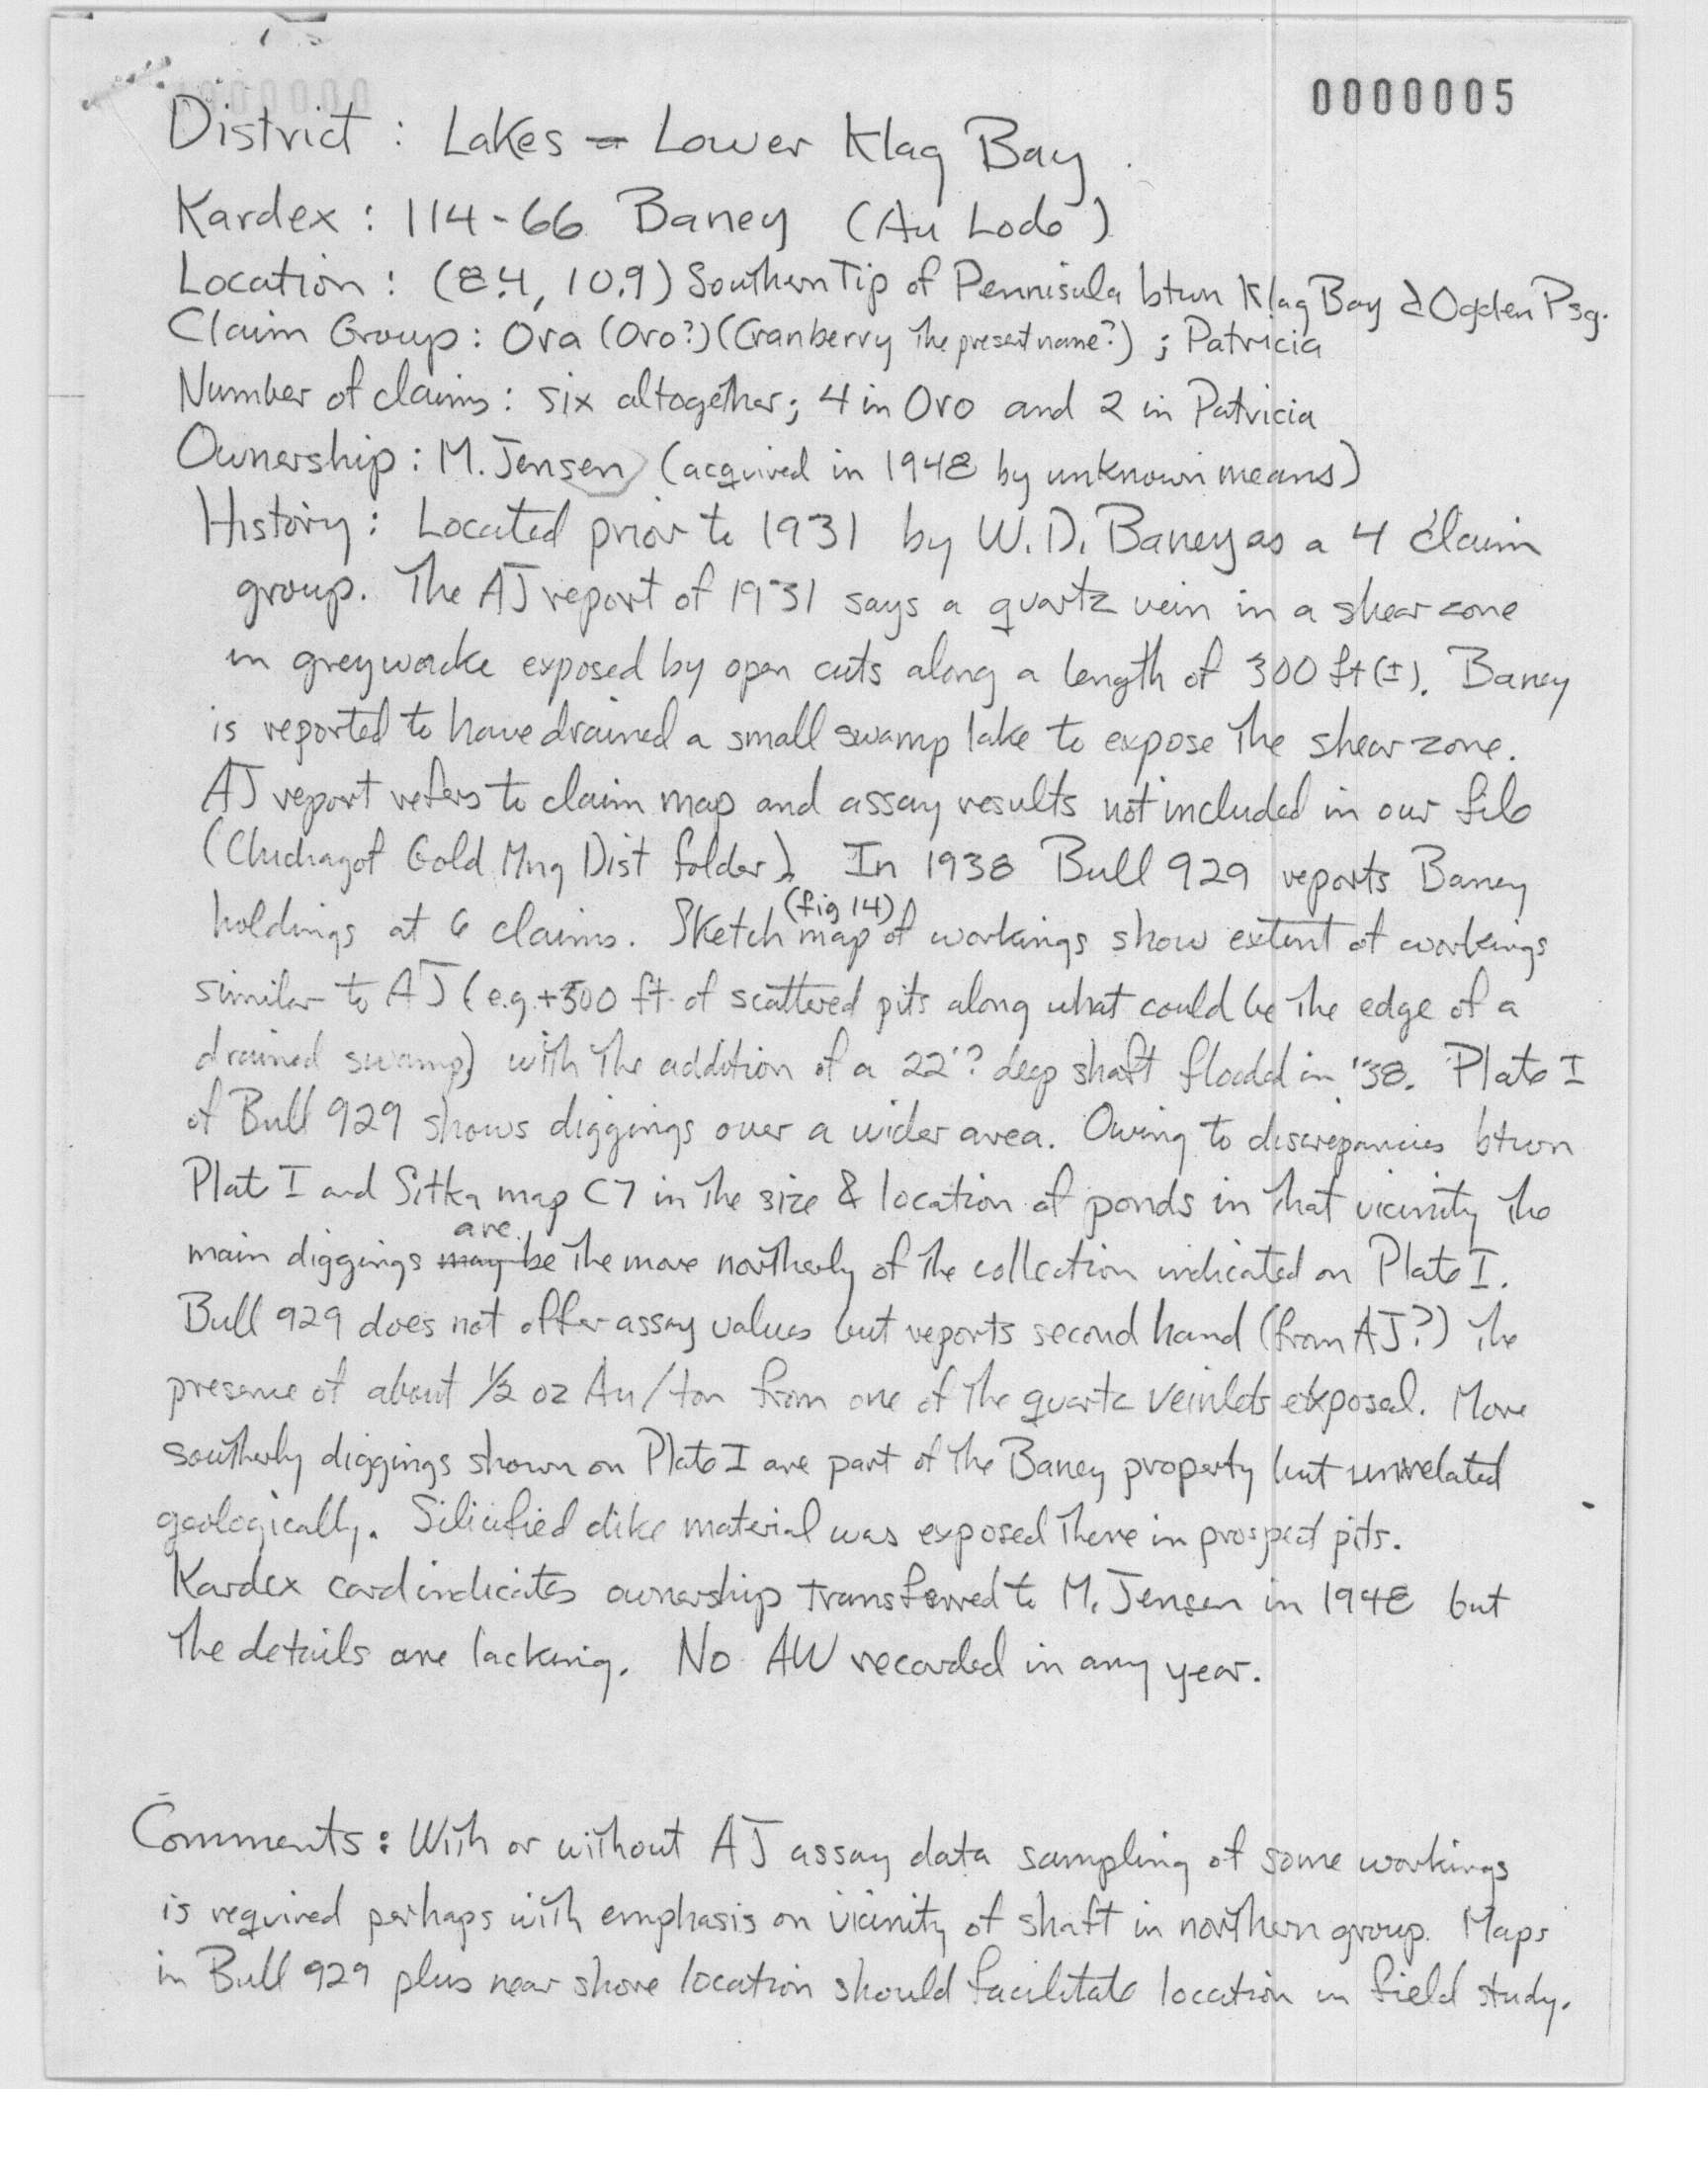 0000005
District : Lakes - Lower Klag Bay
Kardex : 114-66 Baney (Au Lode)
Location : (8.4, 10.9) Southern Tip of Pennisula btwn Klag Bay & Ogden Psg.
Claim Group : Ora (Oro?) (Cranberry the present name?) ; Patricia
Number of claims : six altogether; 4 in Oro and 2 in Patricia
Ownership : M. Jensen (acquired in 1948 by unknown means)
History : Located prior to 1931 by W. D. Baney as a 4 claim
group. The AJ report of 1931 says a quartz vein in a shear zone
in greywacke exposed by open cuts along a length of 300 ft (±). Baney
is reported to have drained a small swamp lake to expose the shear zone.
AJ report refers to claim map and assay results not included in our file
(Chichagof Gold Mng Dist folder). In 1938 Bull 929 reports Baney
holdings at 6 claims. Sketch (fig 14) map of workings show extent of workings
similar to AJ (e.g. +300 ft. of scattered pits along what could be the edge of a
drained swamp) with the addition of a 22'? deep shaft flooded in '38. Plate I
of Bull 929 shows diggings over a wider area. Owing to discrepancies btwn
Plate I and Sitka map C7 in the size & location of ponds in that vicinity the
main diggings are may be the more northerly of the collection indicated on Plate I.
Bull 929 does not offer assay values but reports second hand (from AJ?) the
presence of about ½ oz Au/ton from one of the quartz veinlets exposed. More
southerly diggings shown on Plate I are part of the Baney property but unrelated
geologically. Silicified dike material was exposed there in prospect pits.
Kardex card indicates ownership transferred to M. Jensen in 1948 but
the details are lacking. No AW recorded in any year.
Comments : With or without AJ assay data sampling of some workings
is required perhaps with emphasis on vicinity of shaft in northern group. Maps
in Bull 929 plus near shore location should facilitate location in field study.